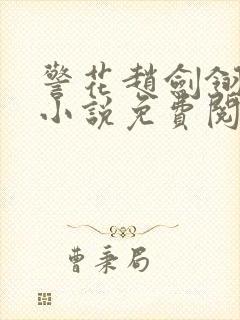 警花趙劍翎
小說免費閱
曹秉局